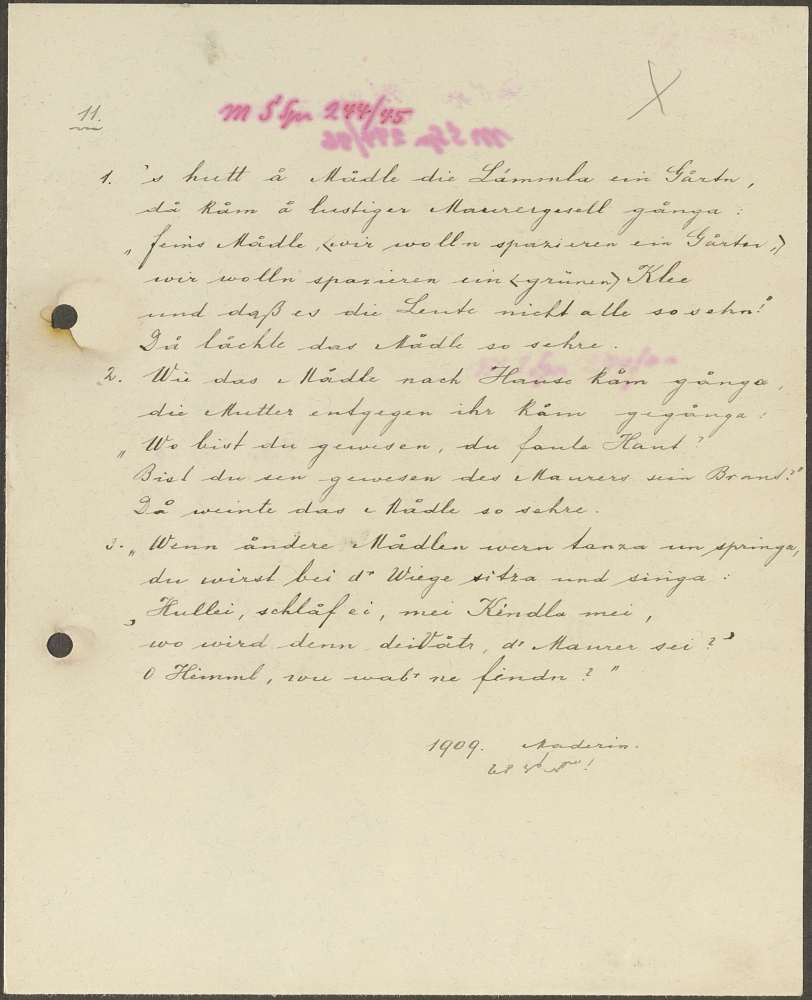 11.
m S Spr 244/45
1. 's hutt å Mådle die Lámmla ein Gårtn,
då kåm å lustiger Maurergesell gånga:
„feins Mådle, <wir wolln spazieren ein Gårtn,>
wir wolln spazieren ein <grünen> Klee
und daß es die Leute nicht alle so sehn!"
Då lächte das Mådle so sehre.
2. Wie das Mådle nach Hause kåm gånga,
die Mutter entgegen ihr kåm gegånga:
„Wo bist du gewesen, du faule Haut?
Bist du sen gewesen des Maurers sein Braut?"
Då weinte das Mådle so sehre.
3. „Wenn åndere Mådlen wern tanza un springa,
du wirst bei dr Wiege sitza und singa:
‚Hullei, schlåf ei, mei Kindla mei,
wo wird denn dei Våtr, dr Maurer sei?'
O Himml, wu wabr ne findn?"
1909. Maderin.